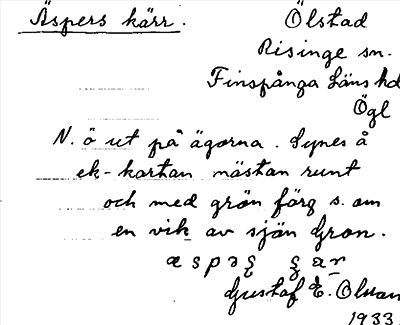 Äspers kärr. Ölstad
Risinge sn.
Finspånga läns hd
Ögl
N. ö ut på ägorna. Synes å
ek-kartan nästan runt
och med grön färg s. om
en vik av sjön Gron.
æspəʂ ʂær
Gustaf E. Olsson
1933.